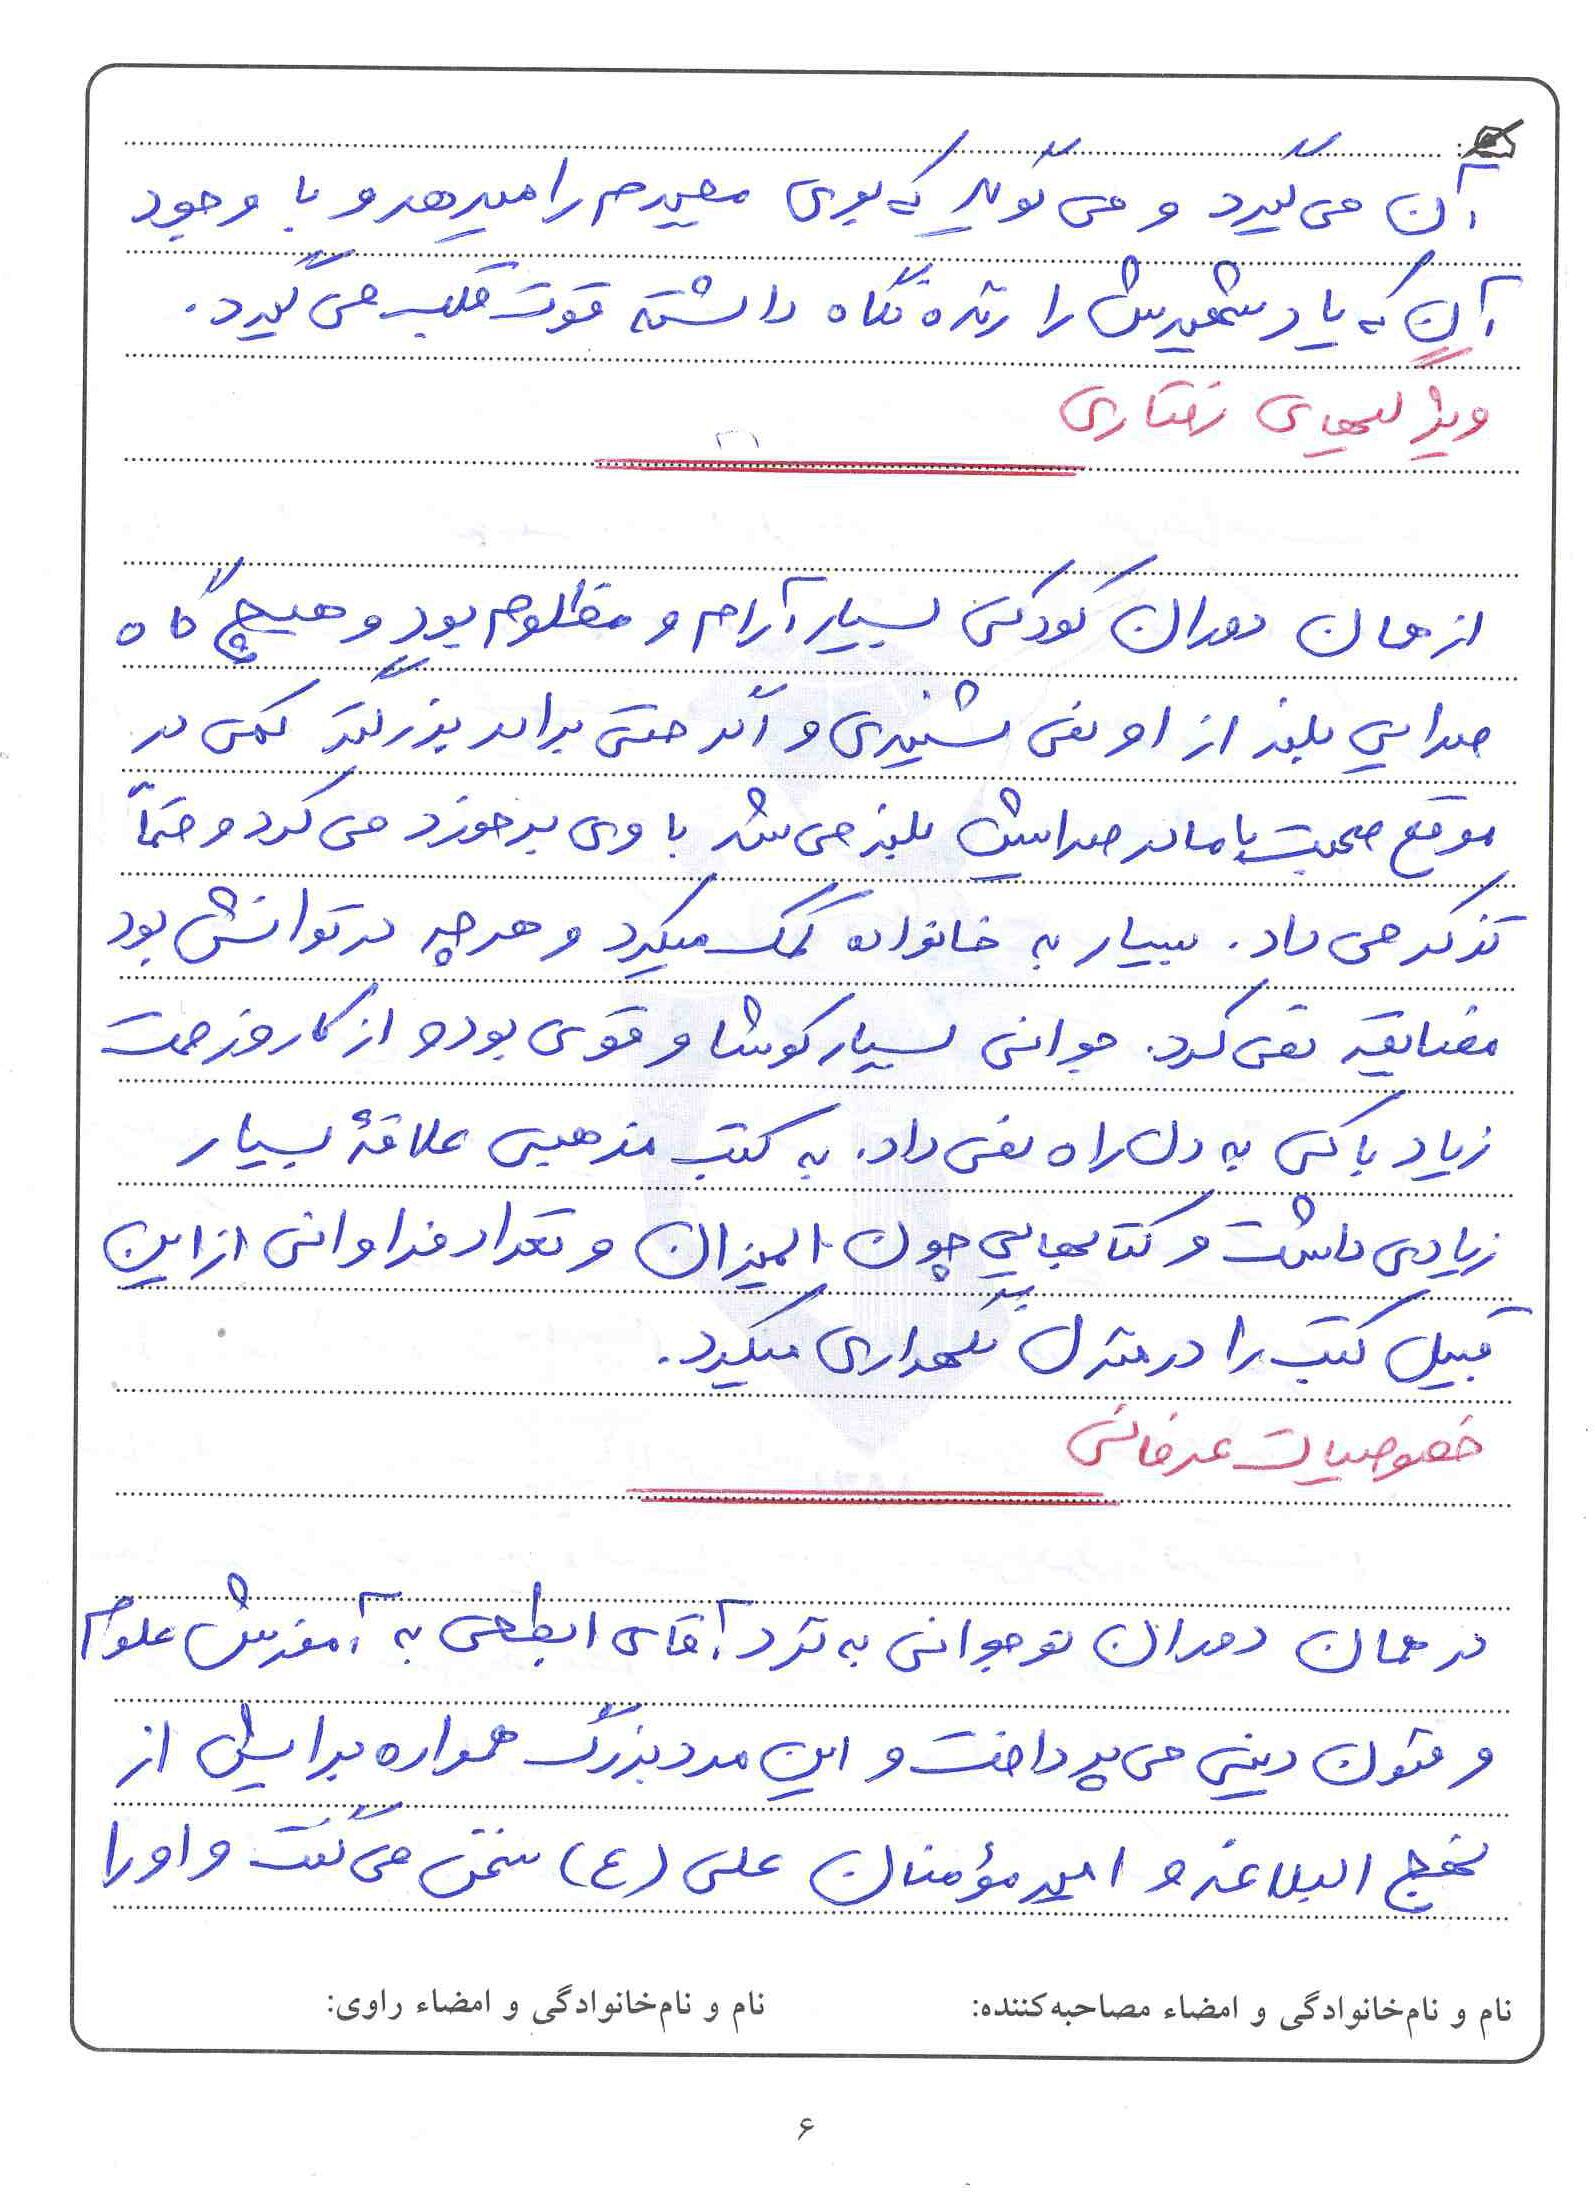 آن می‌گیرد و می‌گوید که بوی مجیدم را میدهد و با وجود
آن که یاد شهیدش را زنده نگاه داشته قوت قلب می‌گیرد.
ویژگیهای رفتاری
از همان دوران کودکی بسیار آرام و مظلوم بود و هیچ گاه
صدایی بلند از او نمی شنیدی و اگر حتی برادر بزرگتر کمی در
موقع صحبت با مادر صدایش بلند می‌شد با وی برخورد می کرد و حتماً
تذکر می داد. بسیار به خانواده کمک میکرد و هر چه در توانش بود
مضایقه نمی کرد. جوانی بسیار کوشا و قوی بود و از کار و زحمت
زیاد باکی به دل راه نمی داد. به کتب مذهبی علاقهٔ بسیار
زیادی داشت و کتابهایی چون المیزان و تعداد فراوانی از این
قبیل کتب را در منزل نگهداری میکرد.
خصوصیات عرفانی
در همان دوران نوجوانی به نزد آقای ابطحی به آموزش علوم
و متون دینی می پرداخت و این مرد بزرگ همواره برایش از
نهج البلاغه و امیر مؤمنان علی (ع) سخن می گفت و او را
نام و نام‌خانوادگی و امضاء مصاحبه‌کننده: نام و نام‌خانوادگی و امضاء راوی:
۶